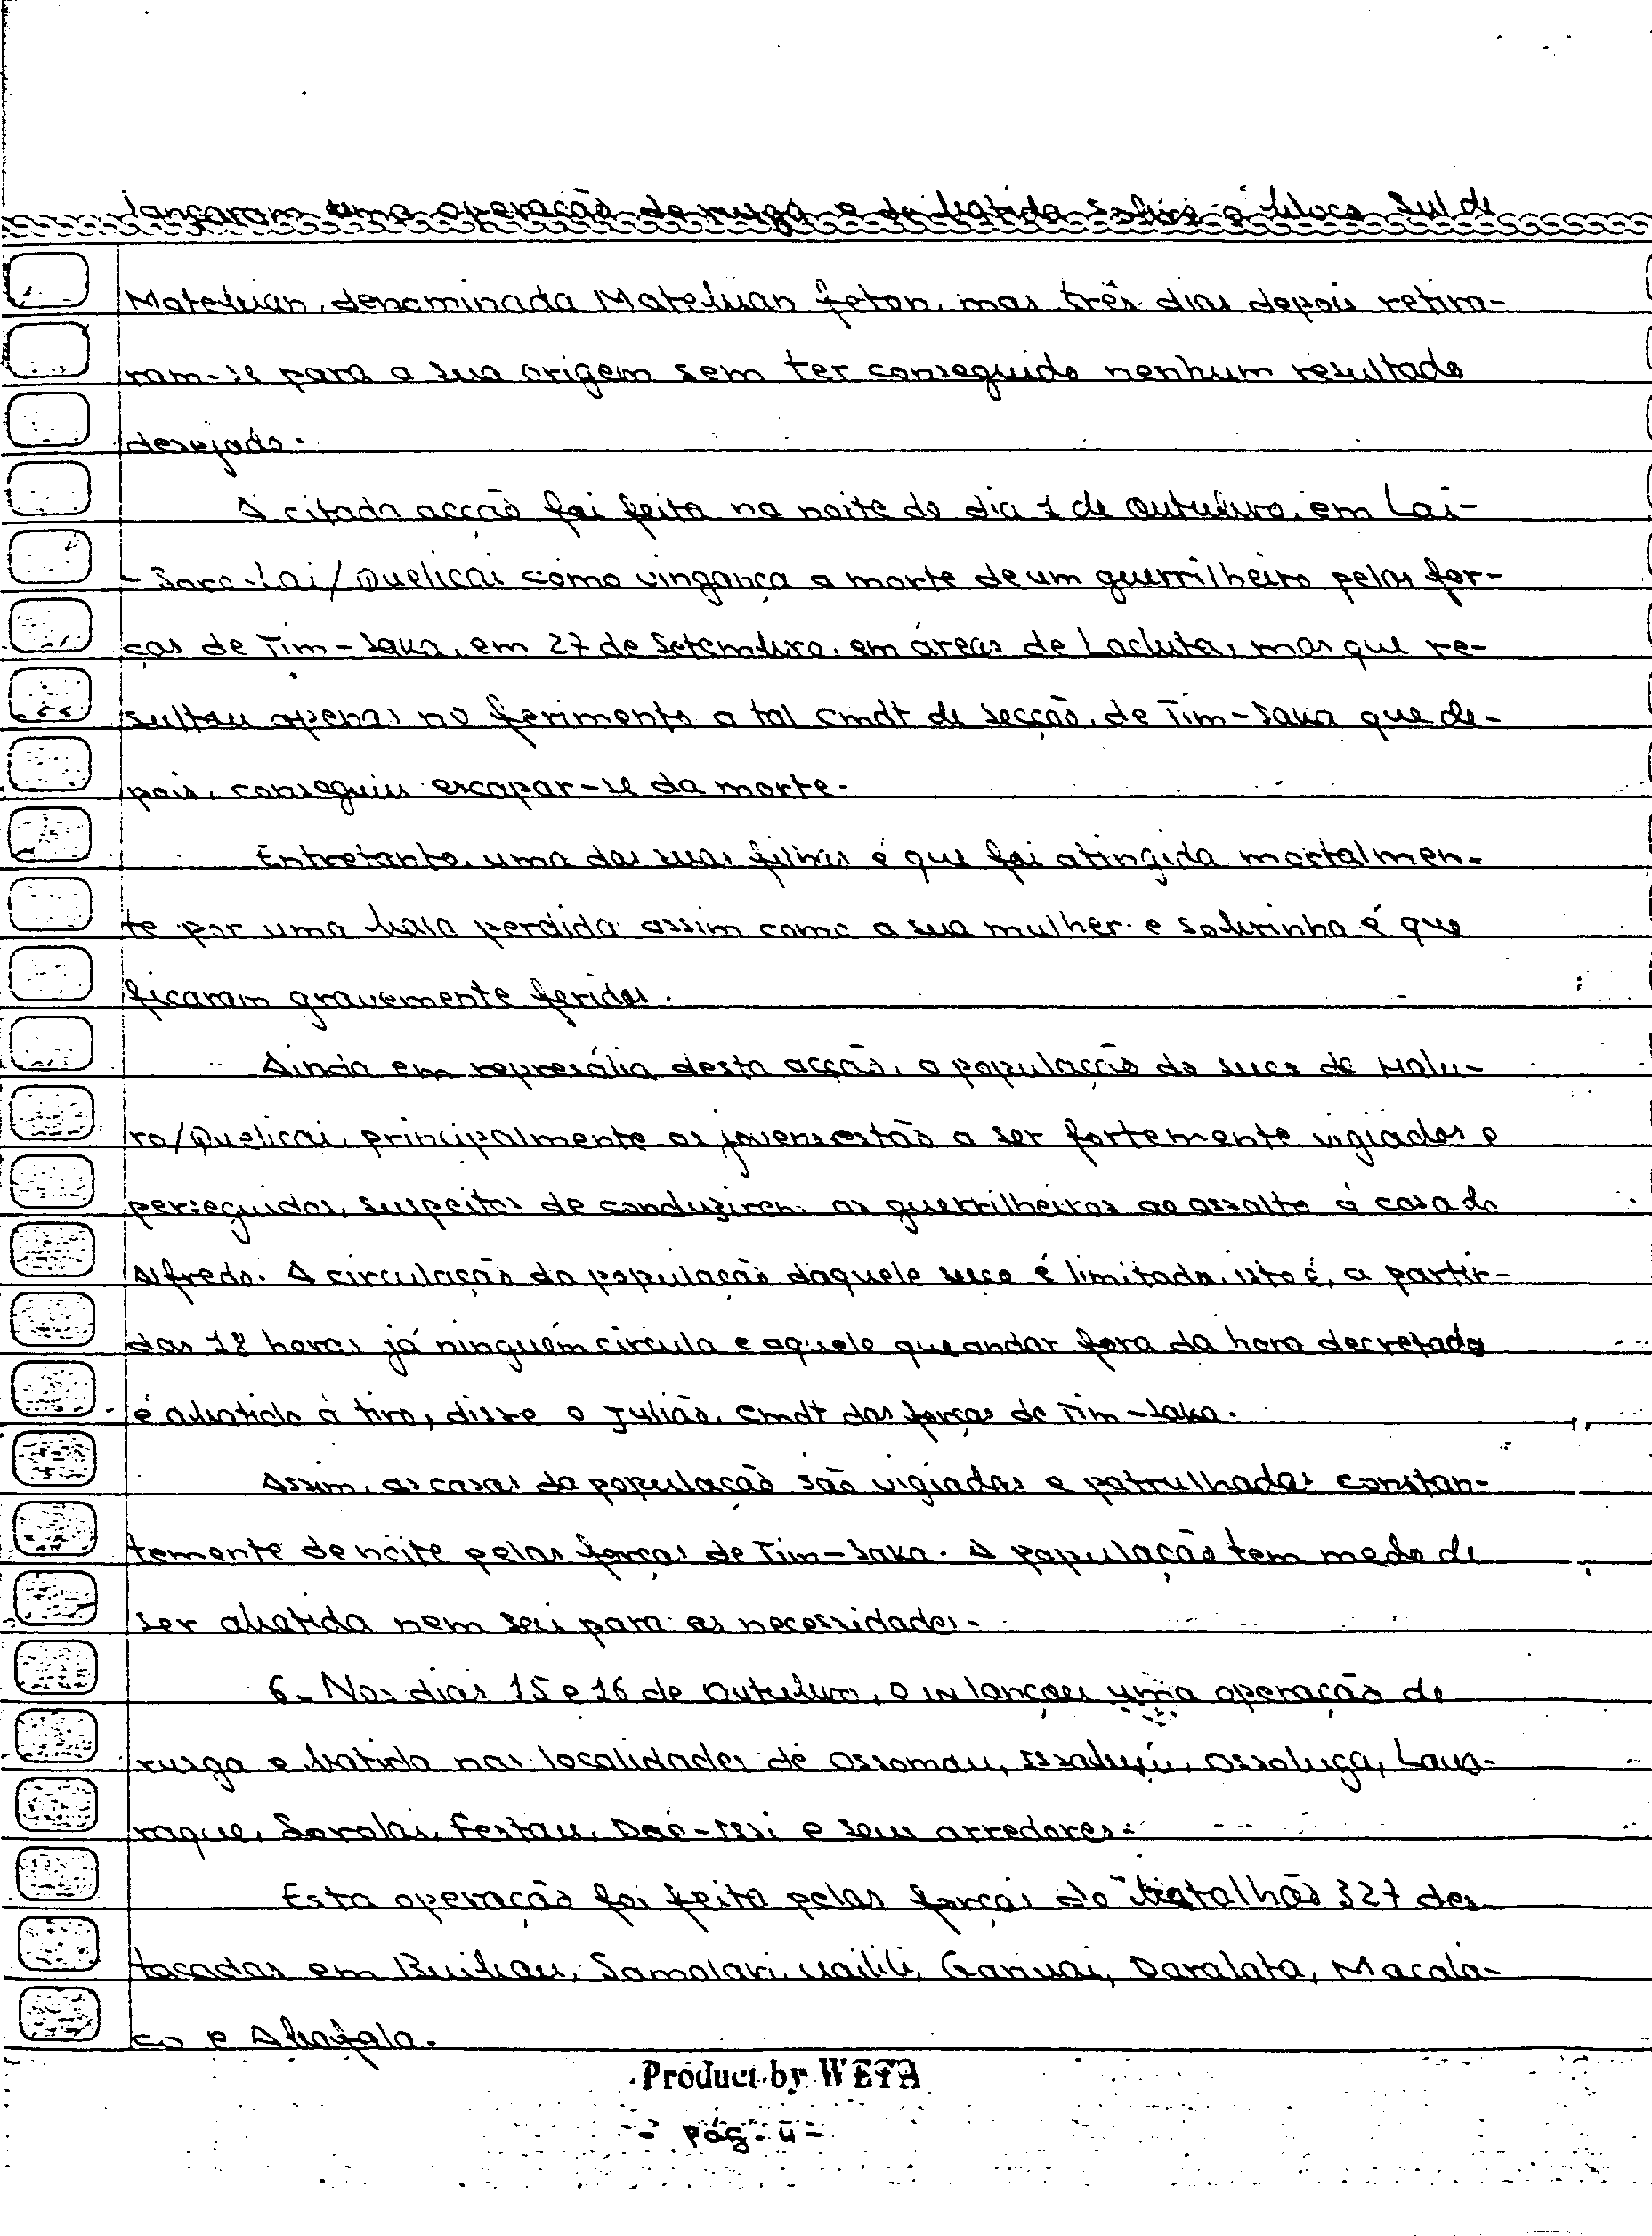 lançaram uma operação de rusga e de batida sobre o bloco Sul de
Matebian, denominada Matebian feton, mas três dias depois retira-
ram-se para a sua origem sem ter conseguido nenhum resultado
desejado.
A citada acção foi feita na noite do dia 1 de Outubro, em Lai-
-Soro-Lai/Quelicai como vingança a morte de um guerrilheiro pelas for-
ças de Tim-Saka, em 27 de Setembro, em áreas de Lacluta, mas que re-
sultou apenas no ferimento a tal cmdt de secção, de Tim-Saka que de-
pois, conseguiu escapar-se da morte.
Entretanto, uma das suas filhas é que foi atingida mortalmen-
te por uma bala perdida assim como a sua mulher e sobrinha é que
ficaram gravemente feridas.
Ainda em represália desta acção, a população do suco de Malu-
ro/Quelicai, principalmente os jovens estão a ser fortemente vigiados e
perseguidos, suspeitos de conduzirem os guerrilheiros ao assalto à casa do
Alfredo. A circulação da população daquele suco é limitada, isto é, a partir
das 18 horas já ninguém circula e aquele que andar fora da hora decretada
é abatido a tiro, disse o Julião, Cmdt das forças de Tim-Saka.
Assim, as casas da população são vigiadas e patrulhadas constan-
temente de noite pelas forças de Tim-Saka. A população tem medo de
ser abatida nem sei para as necessidades.
6- Nos dias 15 e 16 de Outubro, o in lançou uma operação de
rusga e batida nas localidades de Ossomau, Ossoluga, Laua-
raque, Sorolai, Festau, e seus arredores.
Esta operação foi feita pelas forças do Batalhão 327 des-
tacadas em Buibau, Samalari, Uailili, Gariuai, Daralata, Macala-
co e Abafala.
Product by WETA
- pág. 4 -